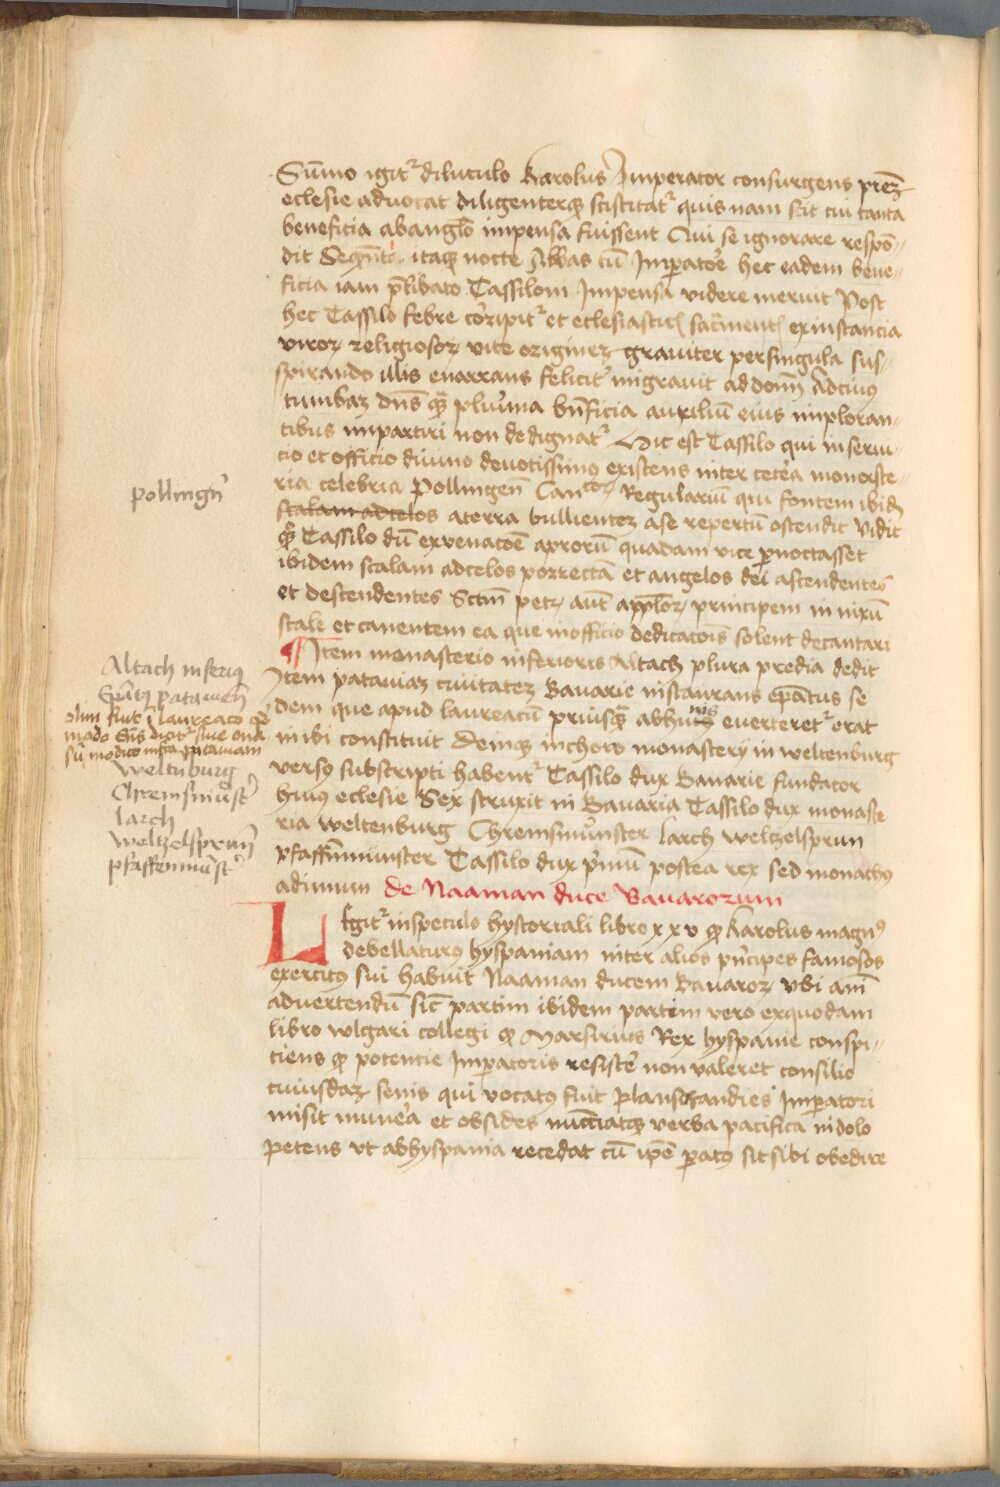 Sūmo igitᷣ diluculo Karolus Imperator consurgens prēz
eclesie advocat diligenterqꝫ sciscitatᷣ quis nam sit cui tanta
beneficia ab anglō impensa fuissent Qui se ignorare respō-
dit Seqn̄ti itaqꝫ nocte Abbas cū Impatōe hec eadem bene-
ficia iam p̄libato Tassiloni Impensa videre meruit Post
hec Tassilo febre cōripitᷣ et ecclesiasticꝭ sac̄mentꝭ ex instancia
viroꝝ religiosoꝝ vite originez graviter per singula sus-
spirando illis enarrans felicitᷣ migravit ad dom̄ Ad cuiꝰ
tumbaz dn̄s qꝫ plurima bn̄ficia auxiliū eius imploran-
tibus impartiri non dedignatᷣ Hic est Tassilo qui in servi-
cio et officio divino devotissimꝰ existens inter cetēa monoste-
ria celebria Pollingen̄ Can^coꝝ Regulariū qui fontem ibidꝫ
scalam ad celos a terra bullientez a se repertū ostendit Vidit
qꝫ Tassilo dū ex venacōe aprorū quadam vice pernoctasset
ibidem scalam ad celos porrectā et angelos dei ascendentes
et descendentes Sctm̄ petꝝ aūt apploꝝ principem in nixū
scale et canentem ea que in officio dedicacōis solent decantari
¶ Item monasterio inferioris Altach plura predia dedit
Item pataviaz civitatez Bavarie instaurans ep̄atus se
dem que apud laureacū priusqꝫ ab hunis everteretᷣ erat
inibi constituit Deinqꝫ in choro monasterij in weltenburg
versꝰ subscripti habentᷣ Tassilo dux Bavarie fundator
huiꝰ eclesie Sex struxit in Bavaria Tassilo dux monaste
ria weltenburg Chremsmūnster larch weltzelsprun
pfaffn̄munster Tassilo dux p̄mū postea rex sed monachꝰ
ad imum de Naaman duce Bavarorum
Legitᷣ in speculo hystoriali libro xxv qꝫ Karolus magnꝰ
debellaturꝰ hyspaniam inter alios p̄ncipes famosos
exercitꝰ sui habuit Naaman ducem Bavaroꝝ vbi am̄
advertendū sic̄ partim ibidem partim vero ex quodam
libro wlgari collegi qꝫ Marsirius Rex hyspanie conspi-
ciens qꝫ potencie Imperatoris resistē non valeret consilio
cuiusdaz senis qui vocatꝰ fuit plansthandies Imperatori
misit munēa et obsides nuncciatqꝫ verba pacifica in dolo
petens vt ab hyspania recedat cū ipē peratꝰ sit sibi obedire
pollingn̄
Altach inferiꝰ
Ep̄atꝰ patavien̄
olim fuit ī laureaco qd̄
modo
weltnburg
Chremsmūst᷑
larch
weltzelsprun̄
pfaffenmūst᷑